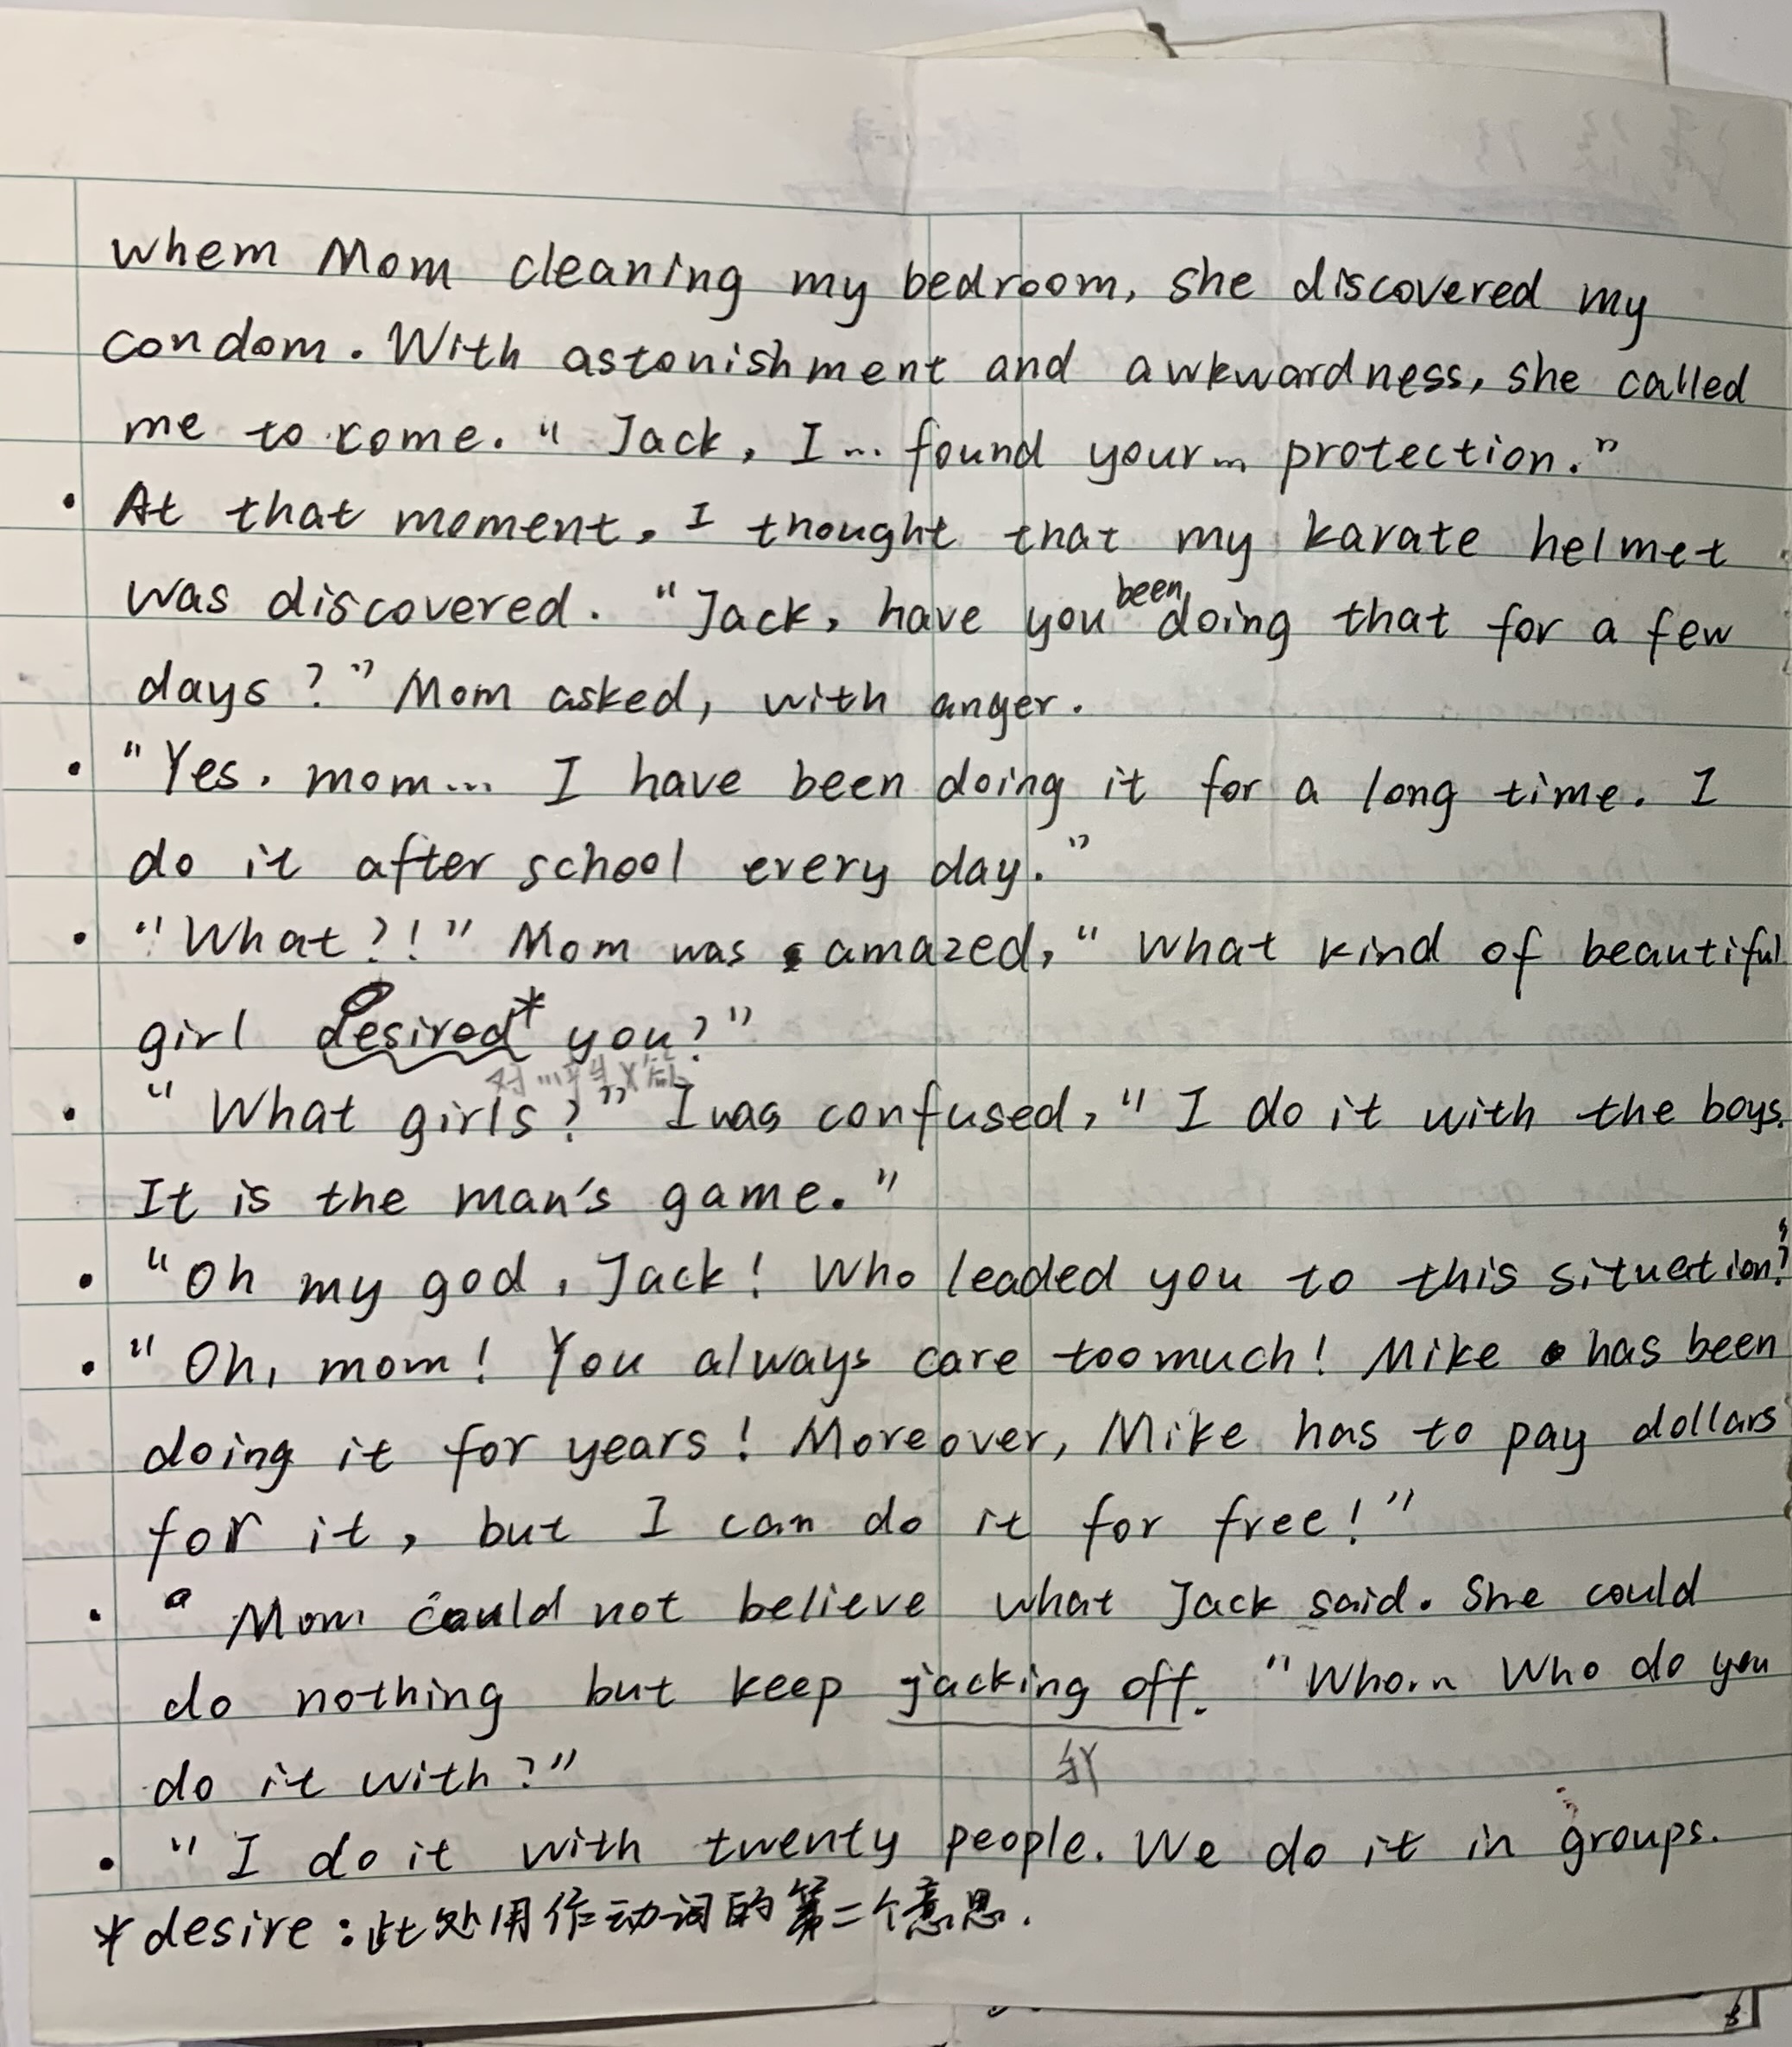 whem Mom cleaning my bedroom, she discovered my
condom. With astonishment and awkwardness, she called
me to come. " Jack, I... found your... protection."
• At that moment, I thought that my karate helmet
was discovered. "Jack, have you been doing that for a few
days?" Mom asked, with anger.
• "Yes, mom... I have been doing it for a long time. I
do it after school every day."
• "What?!" Mom was amazed, "What kind of beautiful
girl desired* you?"
对...
• "What girls?" I was confused, "I do it with the boys.
It is the man's game."
• "Oh my god, Jack! Who leaded you to this situation?"
• "Oh, mom! You always care too much! Mike has been
doing it for years! Moreover, Mike has to pay dollars
for it, but I can do it for free!"
• Mom could not believe what Jack said. She could
do nothing but keep jacking off. "Who... Who do you
do it with?"
• "I do it with twenty people. We do it in groups.
*desire:此处用作动词的第二个意思.